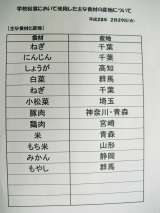 学校給食において使用した主な食材の産地について
平成28年 2月29日(月)
【主な食材と産地】
食材 産地
ねぎ 千葉
にんじん 千葉
しょうが 高知
白菜 群馬
ねぎ 千葉
小松菜 埼玉
豚肉 神奈川・青森
鶏肉 宮崎
米 青森
もち米 山形
みかん 静岡
もやし 群馬